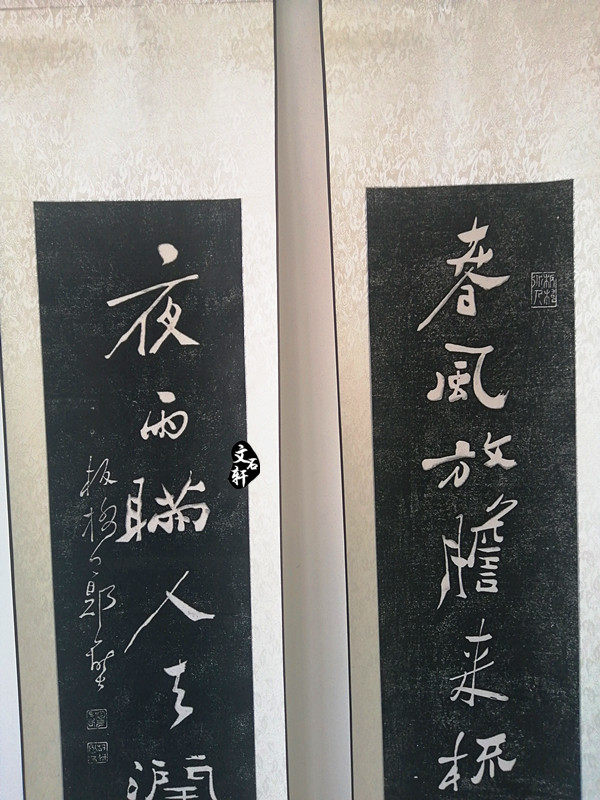 春風放膽来梳
夜雨瞞人去潤
板橋鄭燮
文石軒